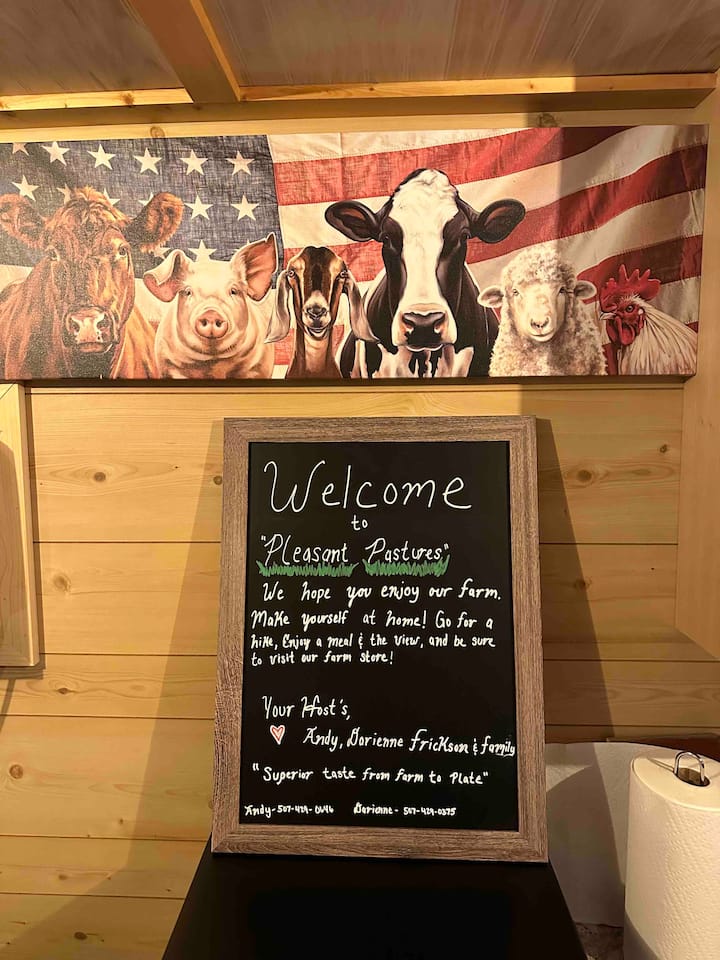 Welcome
to
"Pleasant Pastures"
We hope you enjoy our farm.
Make yourself at home! Go for a
hike, Enjoy a meal & the view, and be sure
to visit our farm store!
Your Host's,
Andy, Dorienne Frickson & family
"Superior taste from farm to Plate"
Andy-507-429-0646 Dorienne- 507-429-0375